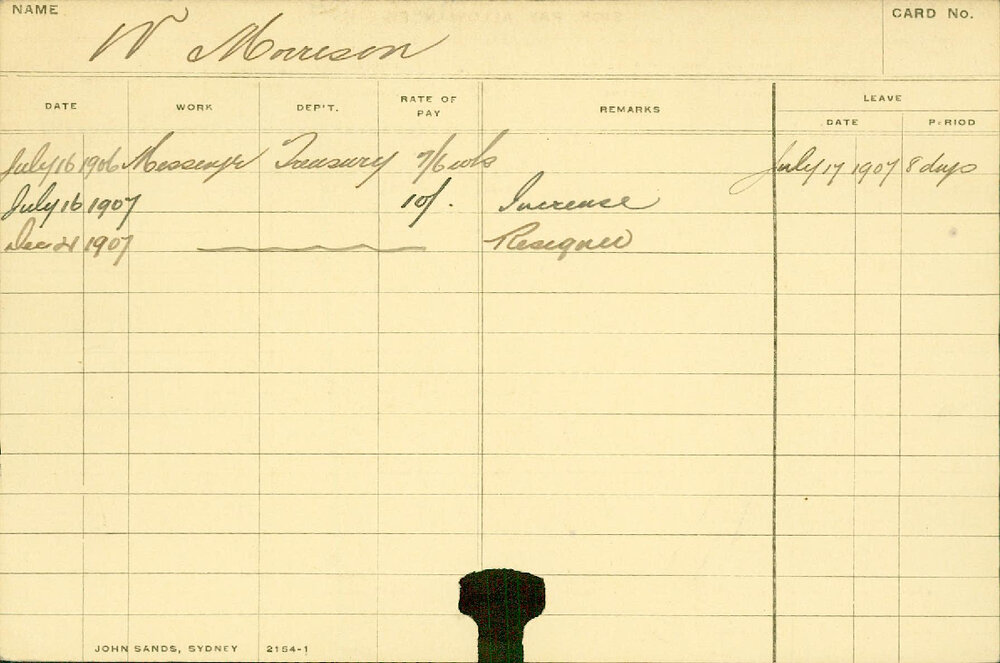 NAME
W Morrison
CARD No.
DATE WORK DEP'T. RATE OF PAY REMARKS LEAVE
DATE PERIOD
July 16 1906 Messenger Treasury 7/6 wk July 17 1907 8 days
July 16 1907 10/. Increase
Dec 21 1907 Resigned
JOHN SANDS, SYDNEY 2154-1